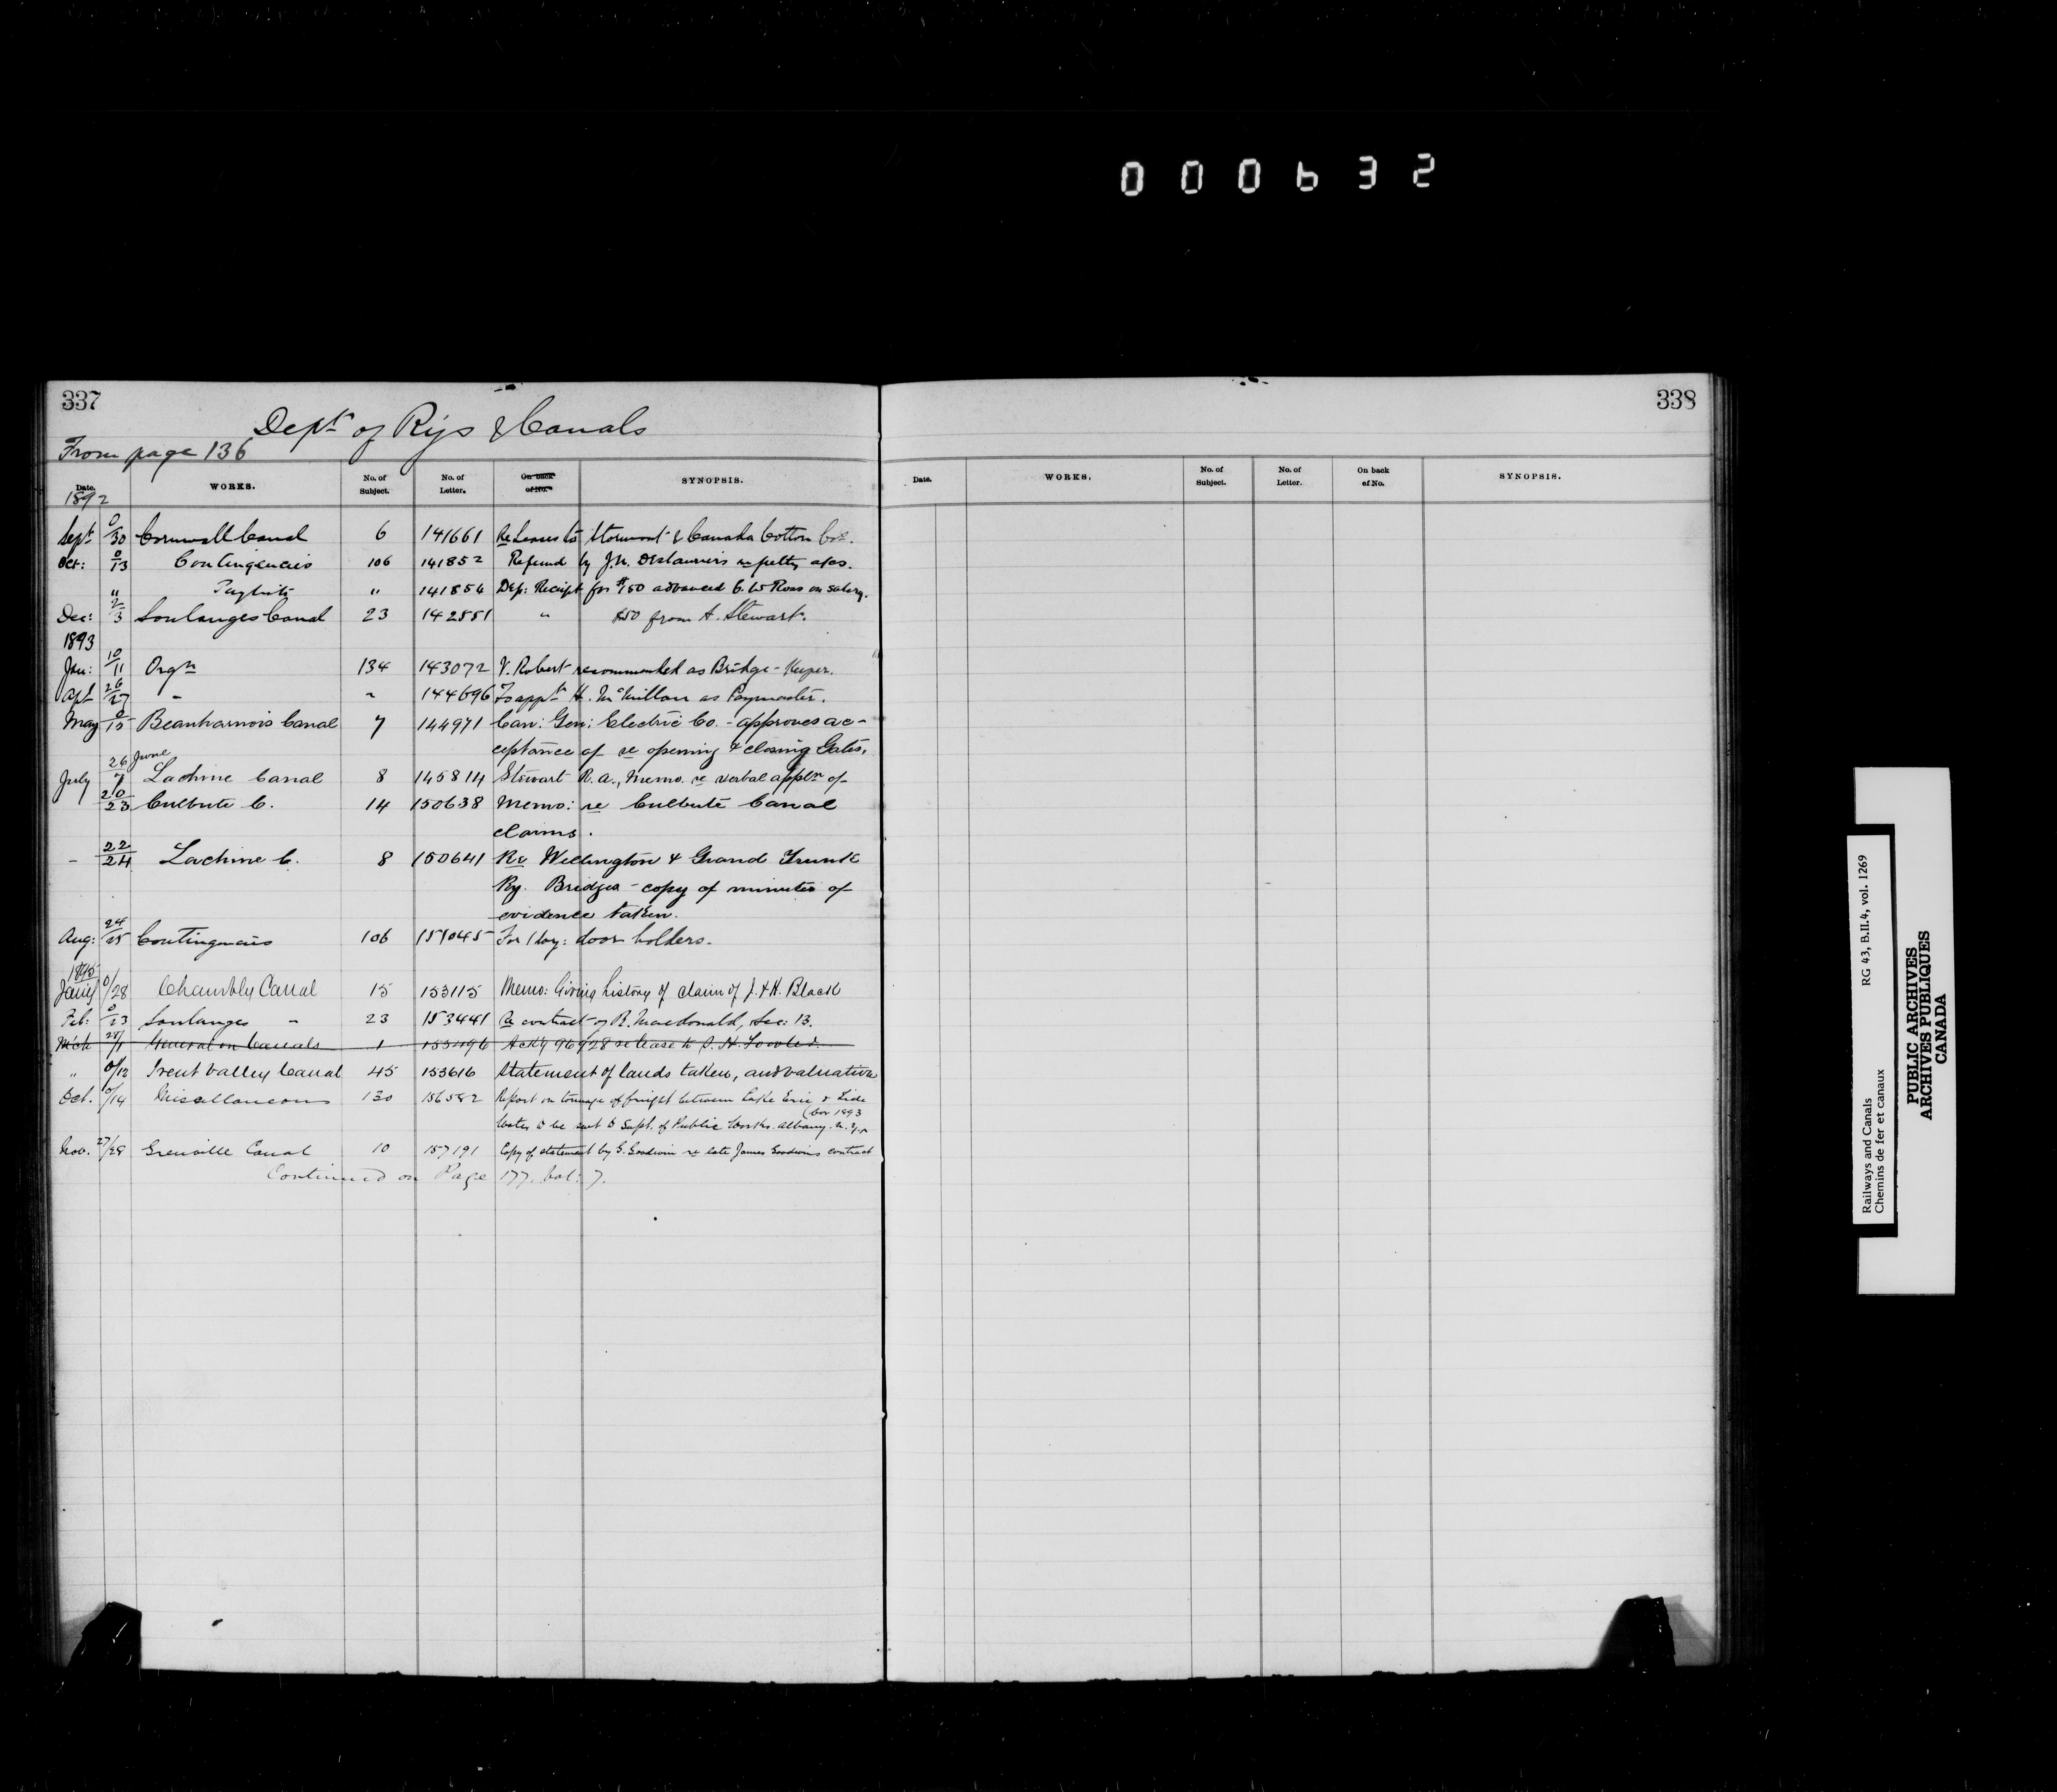 000632
337
Dept of Rys & Canals
From page 136
Date. WORKS. No. of Subject. No. of Letter. On back of No. SYNOPSIS.
1892
Sept 0/30 Cornwall Canal 6 141661 Re Leases to Stormont & Canada Cotton Cos.
Oct: 0/13 Contingencies 106 141852 Refund by J.N. Deslauriers re petty a/cs.
" " 141854 Dep: Receipt for $150 advanced C. W Ross on salary.
Dec: 2/3 Soulanges Canal 23 142551 " $50 from A. Stewart.
1893
Jan: 10/11 Orgn 134 143072 V. Robert recommended as Bridge-Keeper.
Apl 26/27 " " 144696 To appt H. McMillan as Paymaster.
May 0/15 Beauharnois Canal 7 144971 Can: Gen: Electric Co. - approves ac-
ceptance of re opening & closing Gates.
26 June
July 7 Lachine Canal 8 145814 Stewart R.A., Memo. re verbal appln of
20/23 Culbute C. 14 150638 Memo: re Culbute Canal
claims.
- 22/24 Lachine C. 8 150641 Re Wellington & Grand Trunk
Ry. Bridges - copy of minutes of
evidence taken.
Aug: 24/25 Contingencies 106 151045 For 1 doz: door holders.
1895
Jany 0/28 Chambly Canal 15 153115 Memo: Giving history of claim of J. & H. Black
Feb: 0/23 Soulanges " 23 153441 Re contract of R. Macdonald, Sec: 13.
Mch 28/1 General on Canals 1 153496 Ackg 96928 re lease to S. H.
" 0/12 Trent Valley Canal 45 153616 Statement of lands taken, and valuation
Oct. 0/14 Miscellaneous 130 156582 Report on tonnage of freight between Lake Erie & Tide
(for 1893
Water to be sent to Supt. of Public Works. Albany. N.Y.
Nov. 27/28 Grenville Canal 10 157191 Copy of statement by G. Goodwin re late James Goodwins contract
Continued on Page 177. Vol: 7.
338
Date. WORKS. No. of Subject. No. of Letter. On back of No. SYNOPSIS.
Railways and Canals RG 43, B.II.4, vol. 1269
Chemins de fer et canaux
PUBLIC ARCHIVES
ARCHIVES PUBLIQUES
CANADA